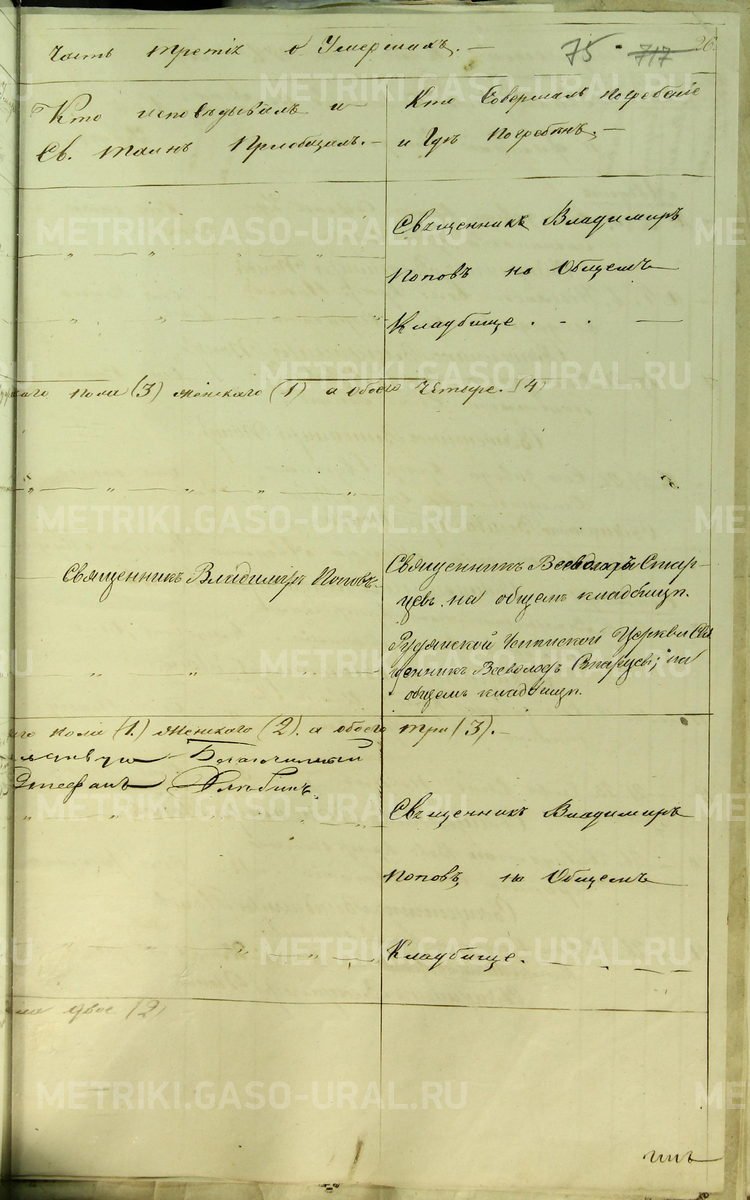 Часть третія о Умершихъ. —
75 717 26
Кто исповѣдывалъ и
Св. таинъ Пріобщалъ. —
Кто Совершалъ погребеніе
и Гдѣ Погребенъ. —
Священникъ Владимиръ
Поповъ на Общемъ
Кладбище . . . —
пола (3) женскаго (1) а обоего Четыре. (4)
Священникъ Владимиръ Поповъ
Священникъ Всеволодъ Стар-
цевъ на общемъ кладбищѣ.
Церкви Свя
щенникъ Всеволодъ Старцевъ; на
общемъ кладбищѣ.
пола (1.) женскаго (2). а обоего три (3). —
Благочинный
Стефанъ
Священникъ Владимиръ
Поповъ, на Общемъ
Кладбище.
двое (2)
METRIKI.GASO-URAL.RU